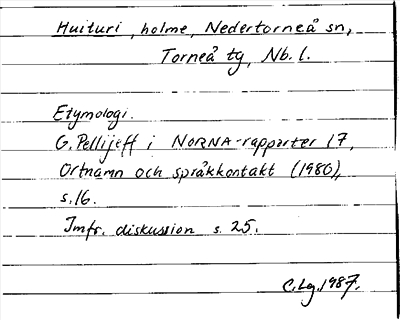 Huituri, holme, Nedertorneå sn,
Torneå tg, Nb. l.
Etymologi.
G. Pellijeff i NORNA-rapporter 17,
Ortnamn och språkkontakt (1980),
s. 16.
Jmfr. diskussion s. 25.
C. Lg. 1987.